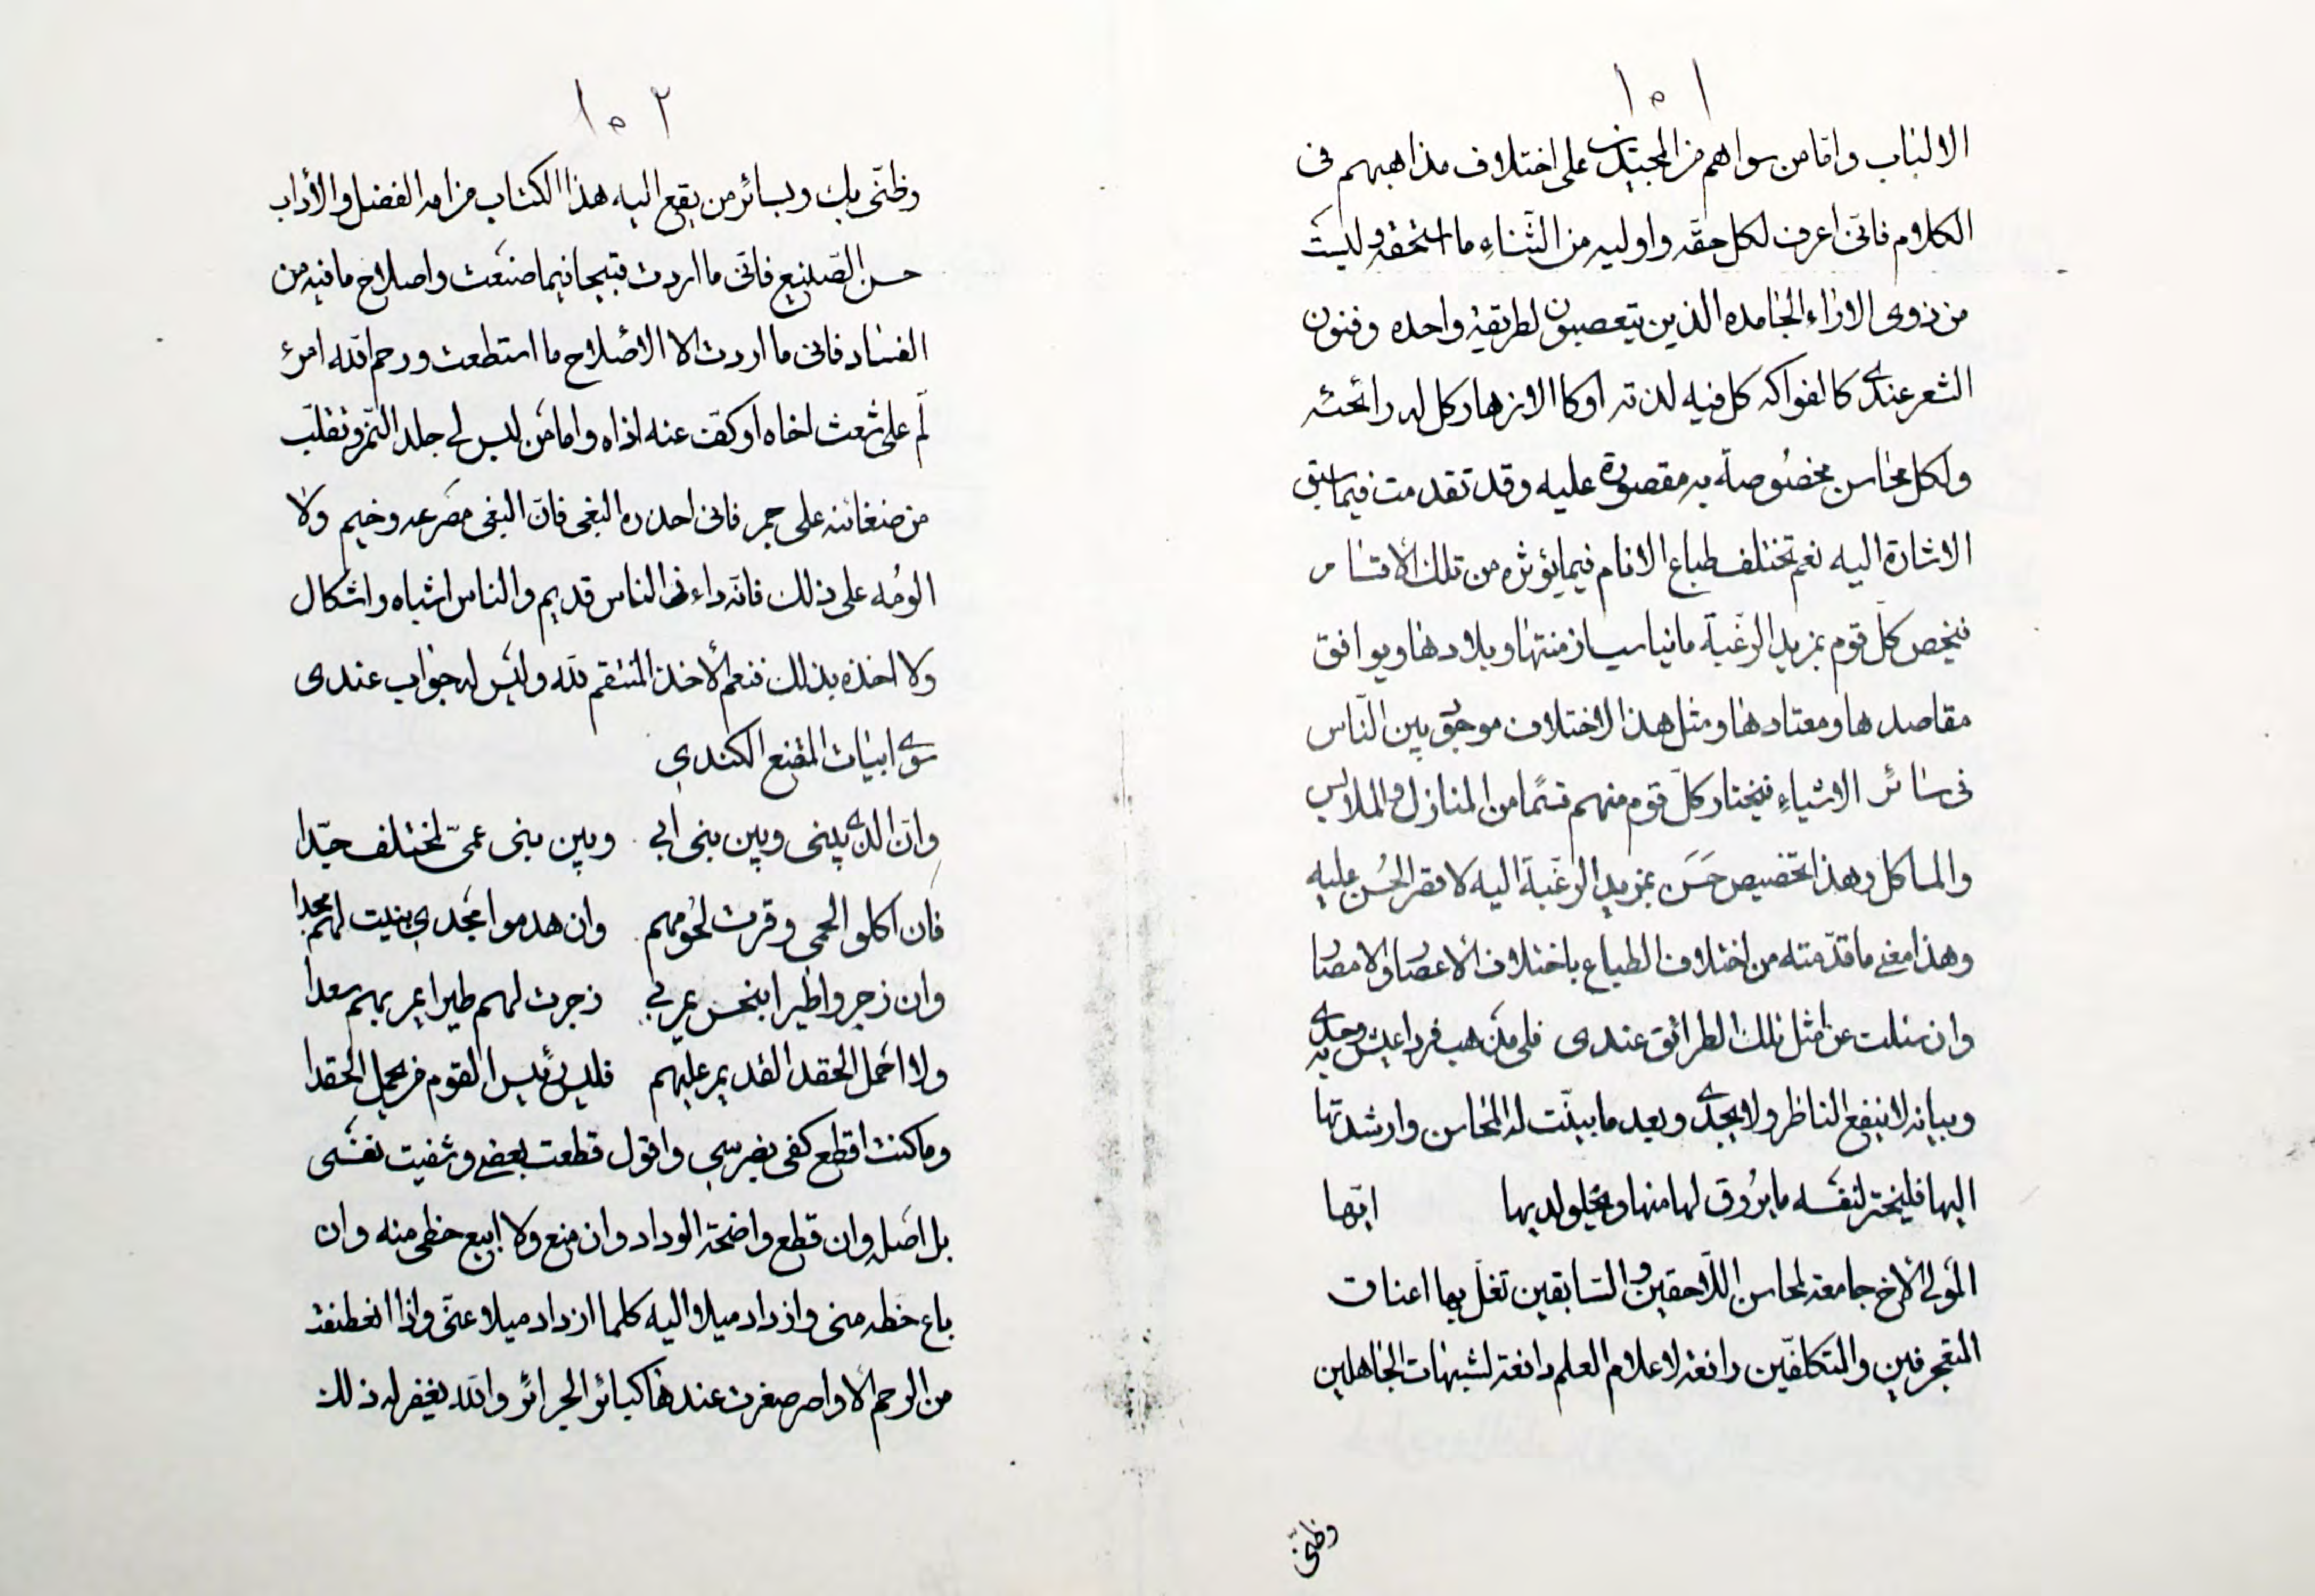 ١٥١
الالباب وامّا من سواهم من المجيدين على اختلاف مذاهبهم فى
الكلام فانّى اعرف لكل حقّه واوليه من الثّناء ما استحقه وليست
من ذوى الاراء الجامده الذين يتعصبون لطريقة واحده وفنون
الشعر عندى كالفواكه كل فيه لذته اوكا الازهار كل له رائحته
ولكل محاسن مخصُوصة به مقصورة عليه وقد تقدمت فيما سبق
الاشارة اليه نعم تختلف طباع الانام فيما يؤثره من تلك الاقسام
فيخص كلّ قوم بمزيد الرّغبة ما يناسب ازمنتها وبلادها ويوافق
مقاصدها ومعتادها ومثل هذا الاختلاف موجود بين النّاس
فى سائر الاشياء فيختار كلّ قوم منهم قسمًا من المنازل والملابس
والماكل وهذا تخصيص حَسَن بمزيد الرغبة اليه لا قصر الحُسن عليه
وهذا معنى ما قدّمته من اختلاف الطباع باختلاف الأعصَار والامصَا
وان سئلت عن امثل تلك الطرائق عندى فلى مذهب فرد اعيش به وحدى
وبيانه لا ينفع الناظر ولا يجدى وبعد ما بيّنت له المحاسن وارشدتها
اليها فليختر لنفسَه ما يرُوق لها منها ويحلو لديها ايّها
المَولى الأخ جامعة لمحاسن اللّاحقين والسّابقين تغلّ بها اعناق
المتعجرفين والمتكلفّين رافعة لاعلام العلم دافعة لشبهات الجاهلين
وظنّى
١٥٢
وظنّى بك وبسائر من يقع اليه هذا الكتاب من اهل الفضل والأداب
حسن الصّنيع فانّى ما اردت قبيحا فيما صنعَت واصلاح ما فيه من
الفساد فانى ما اردت الا الاصْلاح ما استطعت ورحم اللّه امرء
لمّ على شعث اخاه او كفّ عنه اذاه واما مَن لبس لى جلد النّمر وتقلّب
من ضغائنه على جمر فانى احذره البغى فانّ البغى مصَرعه وخيم ولا
الومُه على ذلك فانّه داء فى الناس قديم والناس اشباه واشكال
ولا اخذه بذلك فنعم الأخذ المنتقم للّه وليَس له جوَاب عندى
سوى ابيات المقنع الكندي
وانّ الذى بينى وبين بنى ابي وبين بنى عمىّ لمختلف جدّا
فان اكلو الحمى وفرت لحُومهم وان هدموا مجَدي بنيت لهم مجدا
وان زجروا طيرا بنحس يمر بي زجرت لهم طيرا يمر بهم سعدا
ولا احمل الحقد القديم عليهم فليس رئيس القوم من يحمل الحقدا
وما كنت اقطع كفى بضرسي واقول قطعت بعضى وشفيت نفسَى
بل اصَله وان قطع واضحة الوداد وان منع ولا ابيع حظى منه وان
باع حظه منى وازداد ميلا اليه كلما ازداد ميلا عنّى واذا انعطفت
من الرحم الأواصر صغرت عندها كبائر الجرائر واللّه يغفر له ذلك